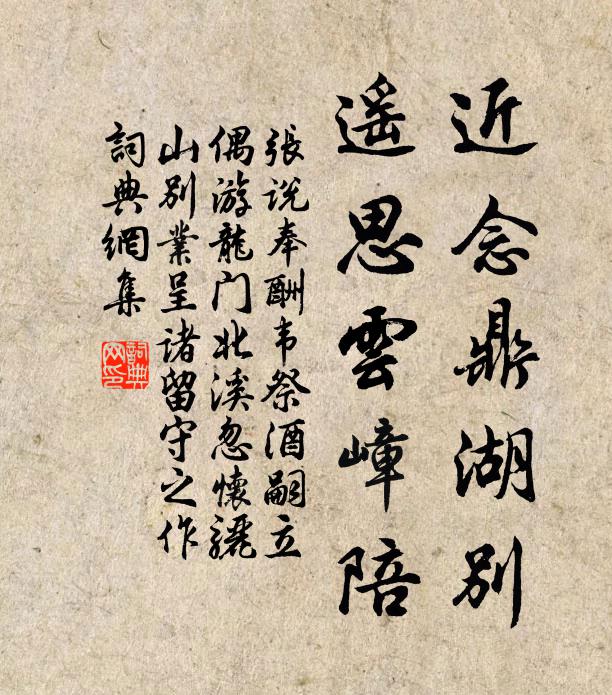 近念鼎湖別
遥思雲嶂陪
張说奉酬韦祭酒嗣立
偶游龍门北溪忽懷驪
山别業呈诸留守之作
詞典網集
詞典
网印